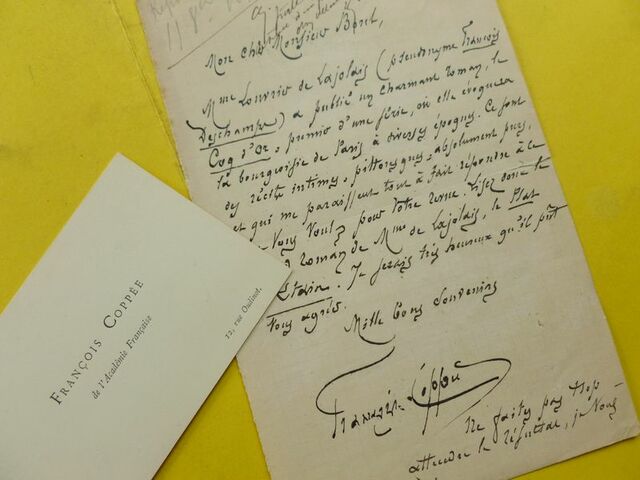 11
Mon cher Monsieur
Mme Louvrier de Lajolais (pseudonyme François
Deschamps) a publié un charmant roman, le
Coq d'Or, premier d'une série, où elle évoquera
la bourgeoisie de Paris à diverses époques. Ce sont
des récits intimes, pittoresques, absolument purs,
et qui me paraissent tout à fait répondre à ce
Vous pour votre revue. Lisez donc le
roman de Mme de Lajolais, le Plat
d'Étain. Je serais très heureux qu'il pût
vous agréer.
Mille bons souvenirs
François Coppée
Ne faites pas trop
attendre le résultat, je vous
FRANÇOIS COPPÉE
de l'Académie Française
12, rue Oudinot.